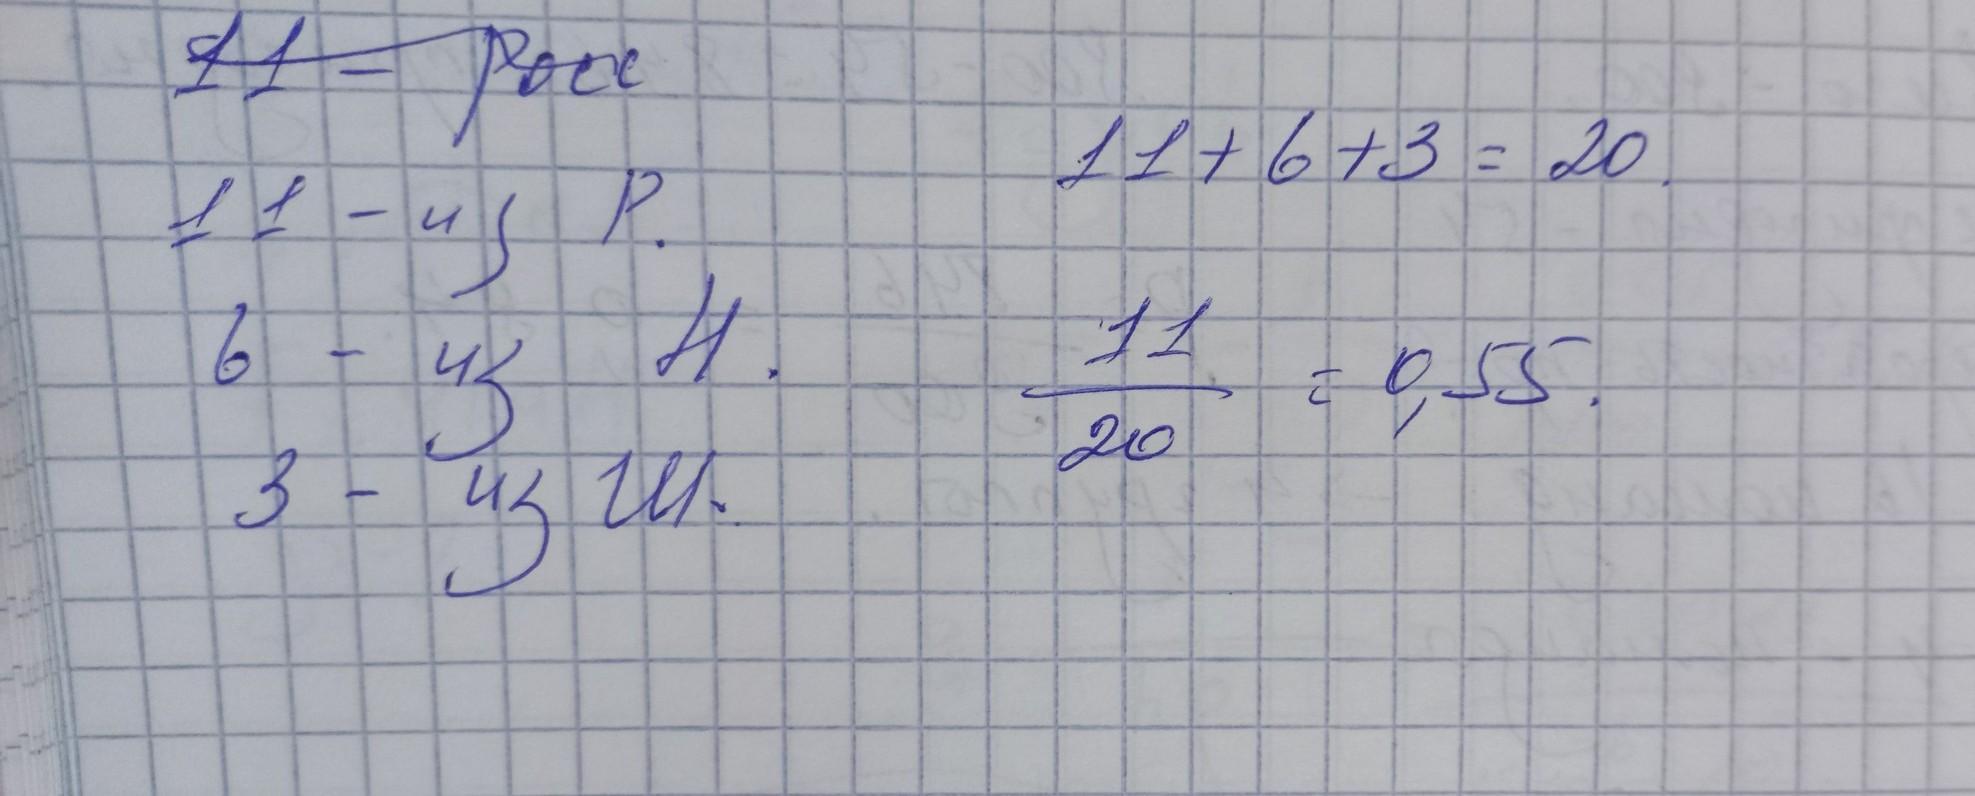 11 - Росс
11 - из Р.
6 - из Н.
3 - из Ш.
11 + 6 + 3 = 20.
11
20
= 0,55.